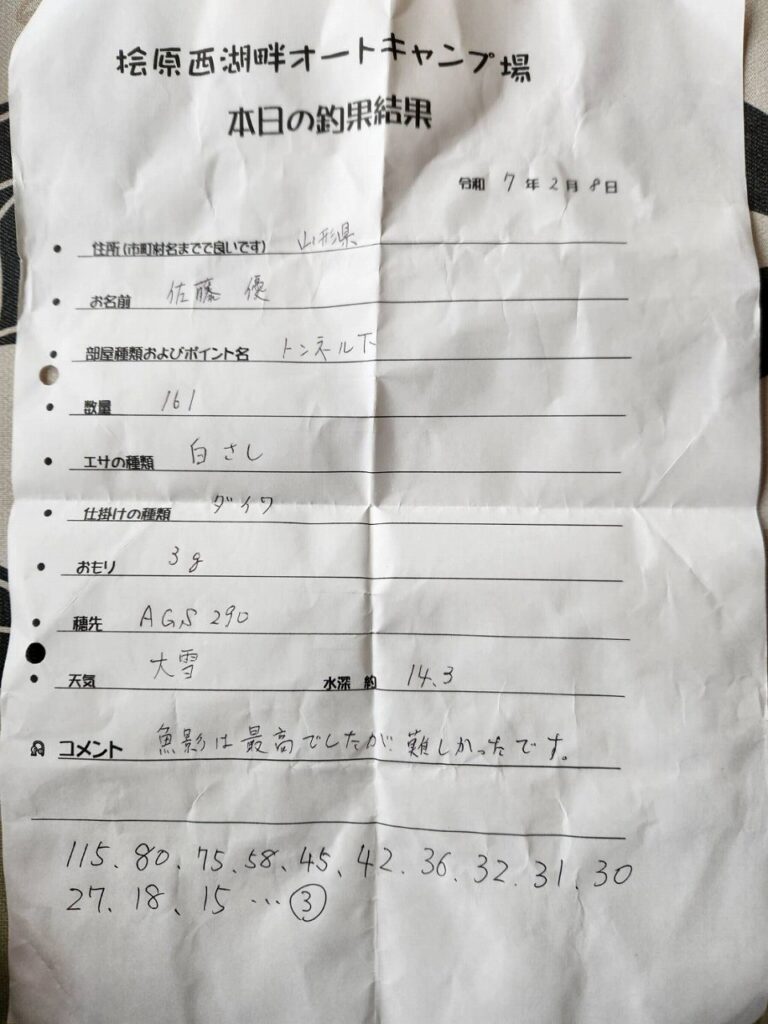 桧原西湖畔オートキャンプ場
本日の釣果結果
令和 7 年 2 月 8 日
• 住所(市町村名までで良いです) 山形県
• お名前 佐藤 優
• 部屋種類およびポイント名 トンネル下
• 数量 161
• エサの種類 白さし
• 仕掛けの種類 ダイワ
• おもり 3g
• 穂先 AGS 290
• 天気 大雪 水深 約 14.3
コメント 魚影は最高でしたが難しかったです。
115、80、75、58、45、42、36、32、31、30
27、18、15 … ③